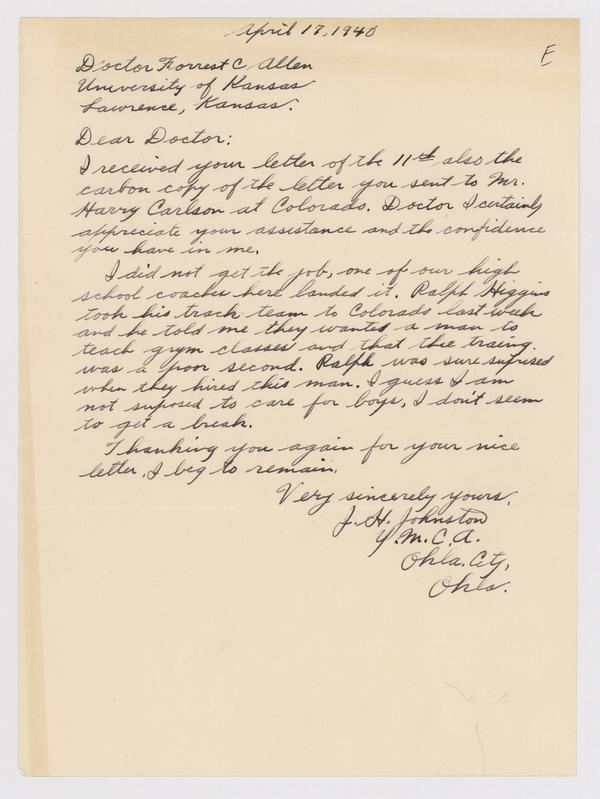 April 17, 1940
E
Doctor Forrest C Allen
University of Kansas
Lawrence, Kansas.
Dear Doctor:
I received your letter of the 11th also the
carbon copy of the letter you sent to Mr.
Harry Carlson at Colorado. Doctor I certainly
appreciate your assistance and the confidence
you have in me.
I did not get the job, one of our high
school coaches here landed it. Ralph Higgins
took his track team to Colorado last week
and he told me they wanted a man to
teach gym classes and that thee traing.
was a poor second. Ralph was sure suprised
when they hired this man. I guess I am
not suposed to care for boys, I don't seem
to get a break.
Thanking you again for your nice
letter, I beg to remain,
Very sincerely yours,
J. H. Johnston
Y.M.C.A.
Okla. City,
Okla.